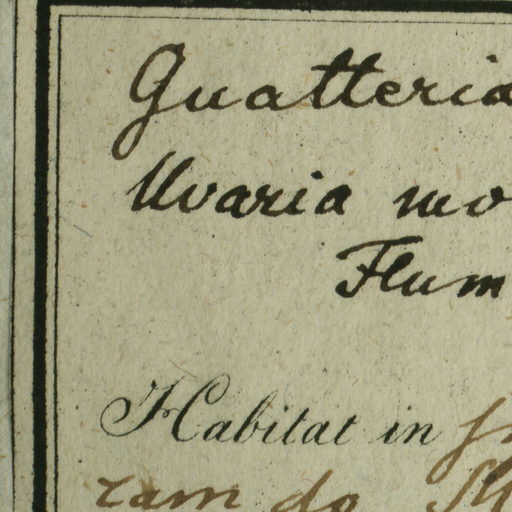 Guatteria
Uvaria mo
Flum
Habitat in
ram do